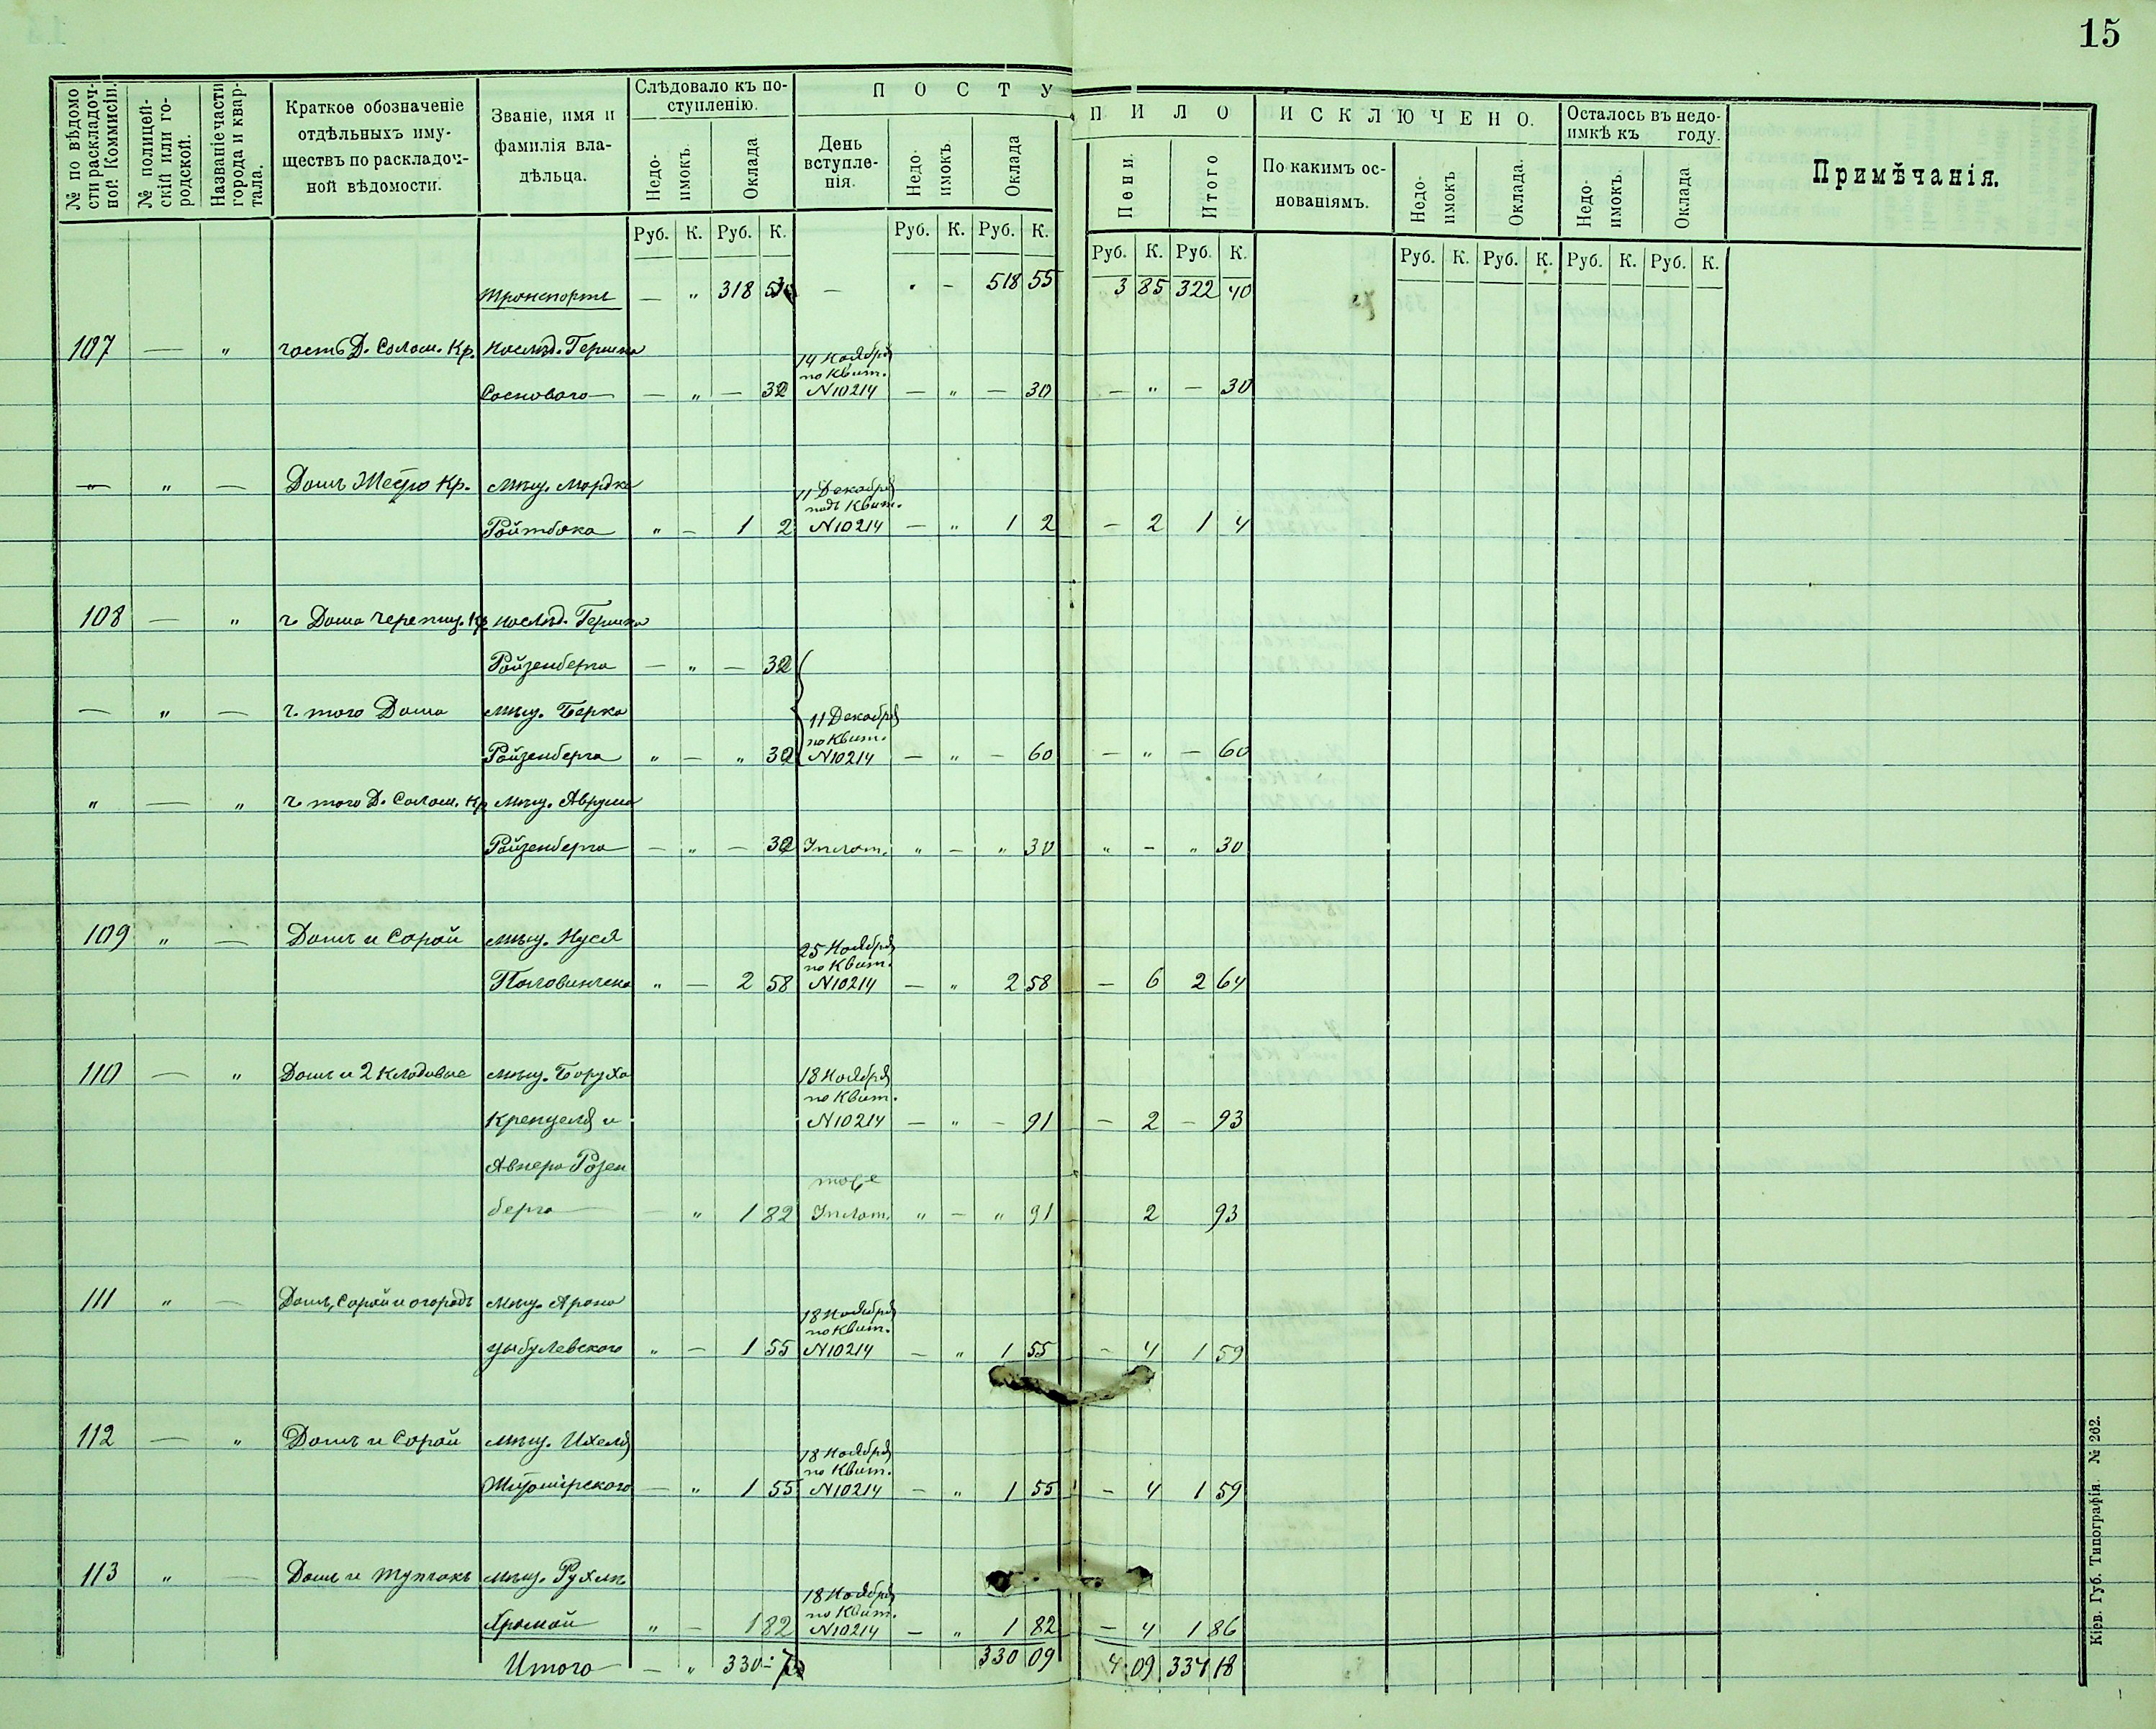 15
№ по вѣдомости раскладочной Коммисіи.
№ полицейскій или городской.
Названіе части города и квартала.
Краткое обозначеніе
отдѣльныхъ иму-
ществъ по расклад оч-
ной вѣдомости.
Званіе, имя и
фамилія вла-
дѣльца.
Слѣдовало къ по-
ступленію.
Недоимокъ.
Оклада
ПОСТУПИЛО
День
вступле-
нія.
Недоимокъ.
Оклада
Пени.
Итого
ИСКЛЮЧЕНО.
По какимъ ос-
нованіямъ.
Недоимокъ
Оклада.
Осталось въ недо-
имкѣ къ году.
Недоимокъ.
Оклада
Примѣчанія.
Руб. К. Руб. К. Руб. К. Руб. К. Руб. К. Руб. К. Руб. К. Руб. К. Руб. К. Руб. К.
Транспортъ — " 318 — - 518 55 3 85 322 40
107 — " часть Д. Солом. Кр. Наслѣд. Гершка 14 Ноября
по Квит.
Соснового — " — N10214 — " — 30 — " — 30
" — Домъ Кр. мѣщ. Мордка 11 Декабря
подъ Квит.
Ройтбока " — 1 2 N10214 — " 1 2 — 2 1 4
108 — " ч. Дома черепиц. Кр. наслѣд. Гершка
Ройзенберга — " —
— " — ч. того Дома мѣщ. Берка 11 Декабря
по Квит.
Ройзенберга " — " N10214 — " — 60 — " — 60
" — " ч. того Д. Солом. Кр мѣщ. Аврума
Ройзенберга — " — " — " 30 " — " 30
109 " — Домъ и Сарай мѣщ. Нуся 25 Ноября
по Квит.
" — 2 58 N10214 — " 2 58 — 6 2 64
110 — " Домъ и 2 кладовые мѣщ. Боруха 18 Ноября
по Квит.
Кренцеля и N10214 — " — 91 — 2 — 93
Авнера Розен
тоже
берга — " 1 82 " — " 91 2 93
111 " — Домъ, Сарай и огородъ мѣщ. Арона 18 Ноября
по Квит.
Цыбулевского " — 1 55 N10214 — " 1 55 — 4 1 59
112 — " Домъ и Сарай мѣщ. Ихеля 18 Ноября
по Квит.
Житомірского — " 1 55 N10214 — " 1 55 — 4 1 59
113 " — Домъ и мѣщ. Рухля 18 Ноября
по Квит.
" — 1 82 N10214 — " 1 82 — 4 1 86
Итого — " 330 330 09 4 09 334 18
Кіев. Губ. Типографія. № 262.